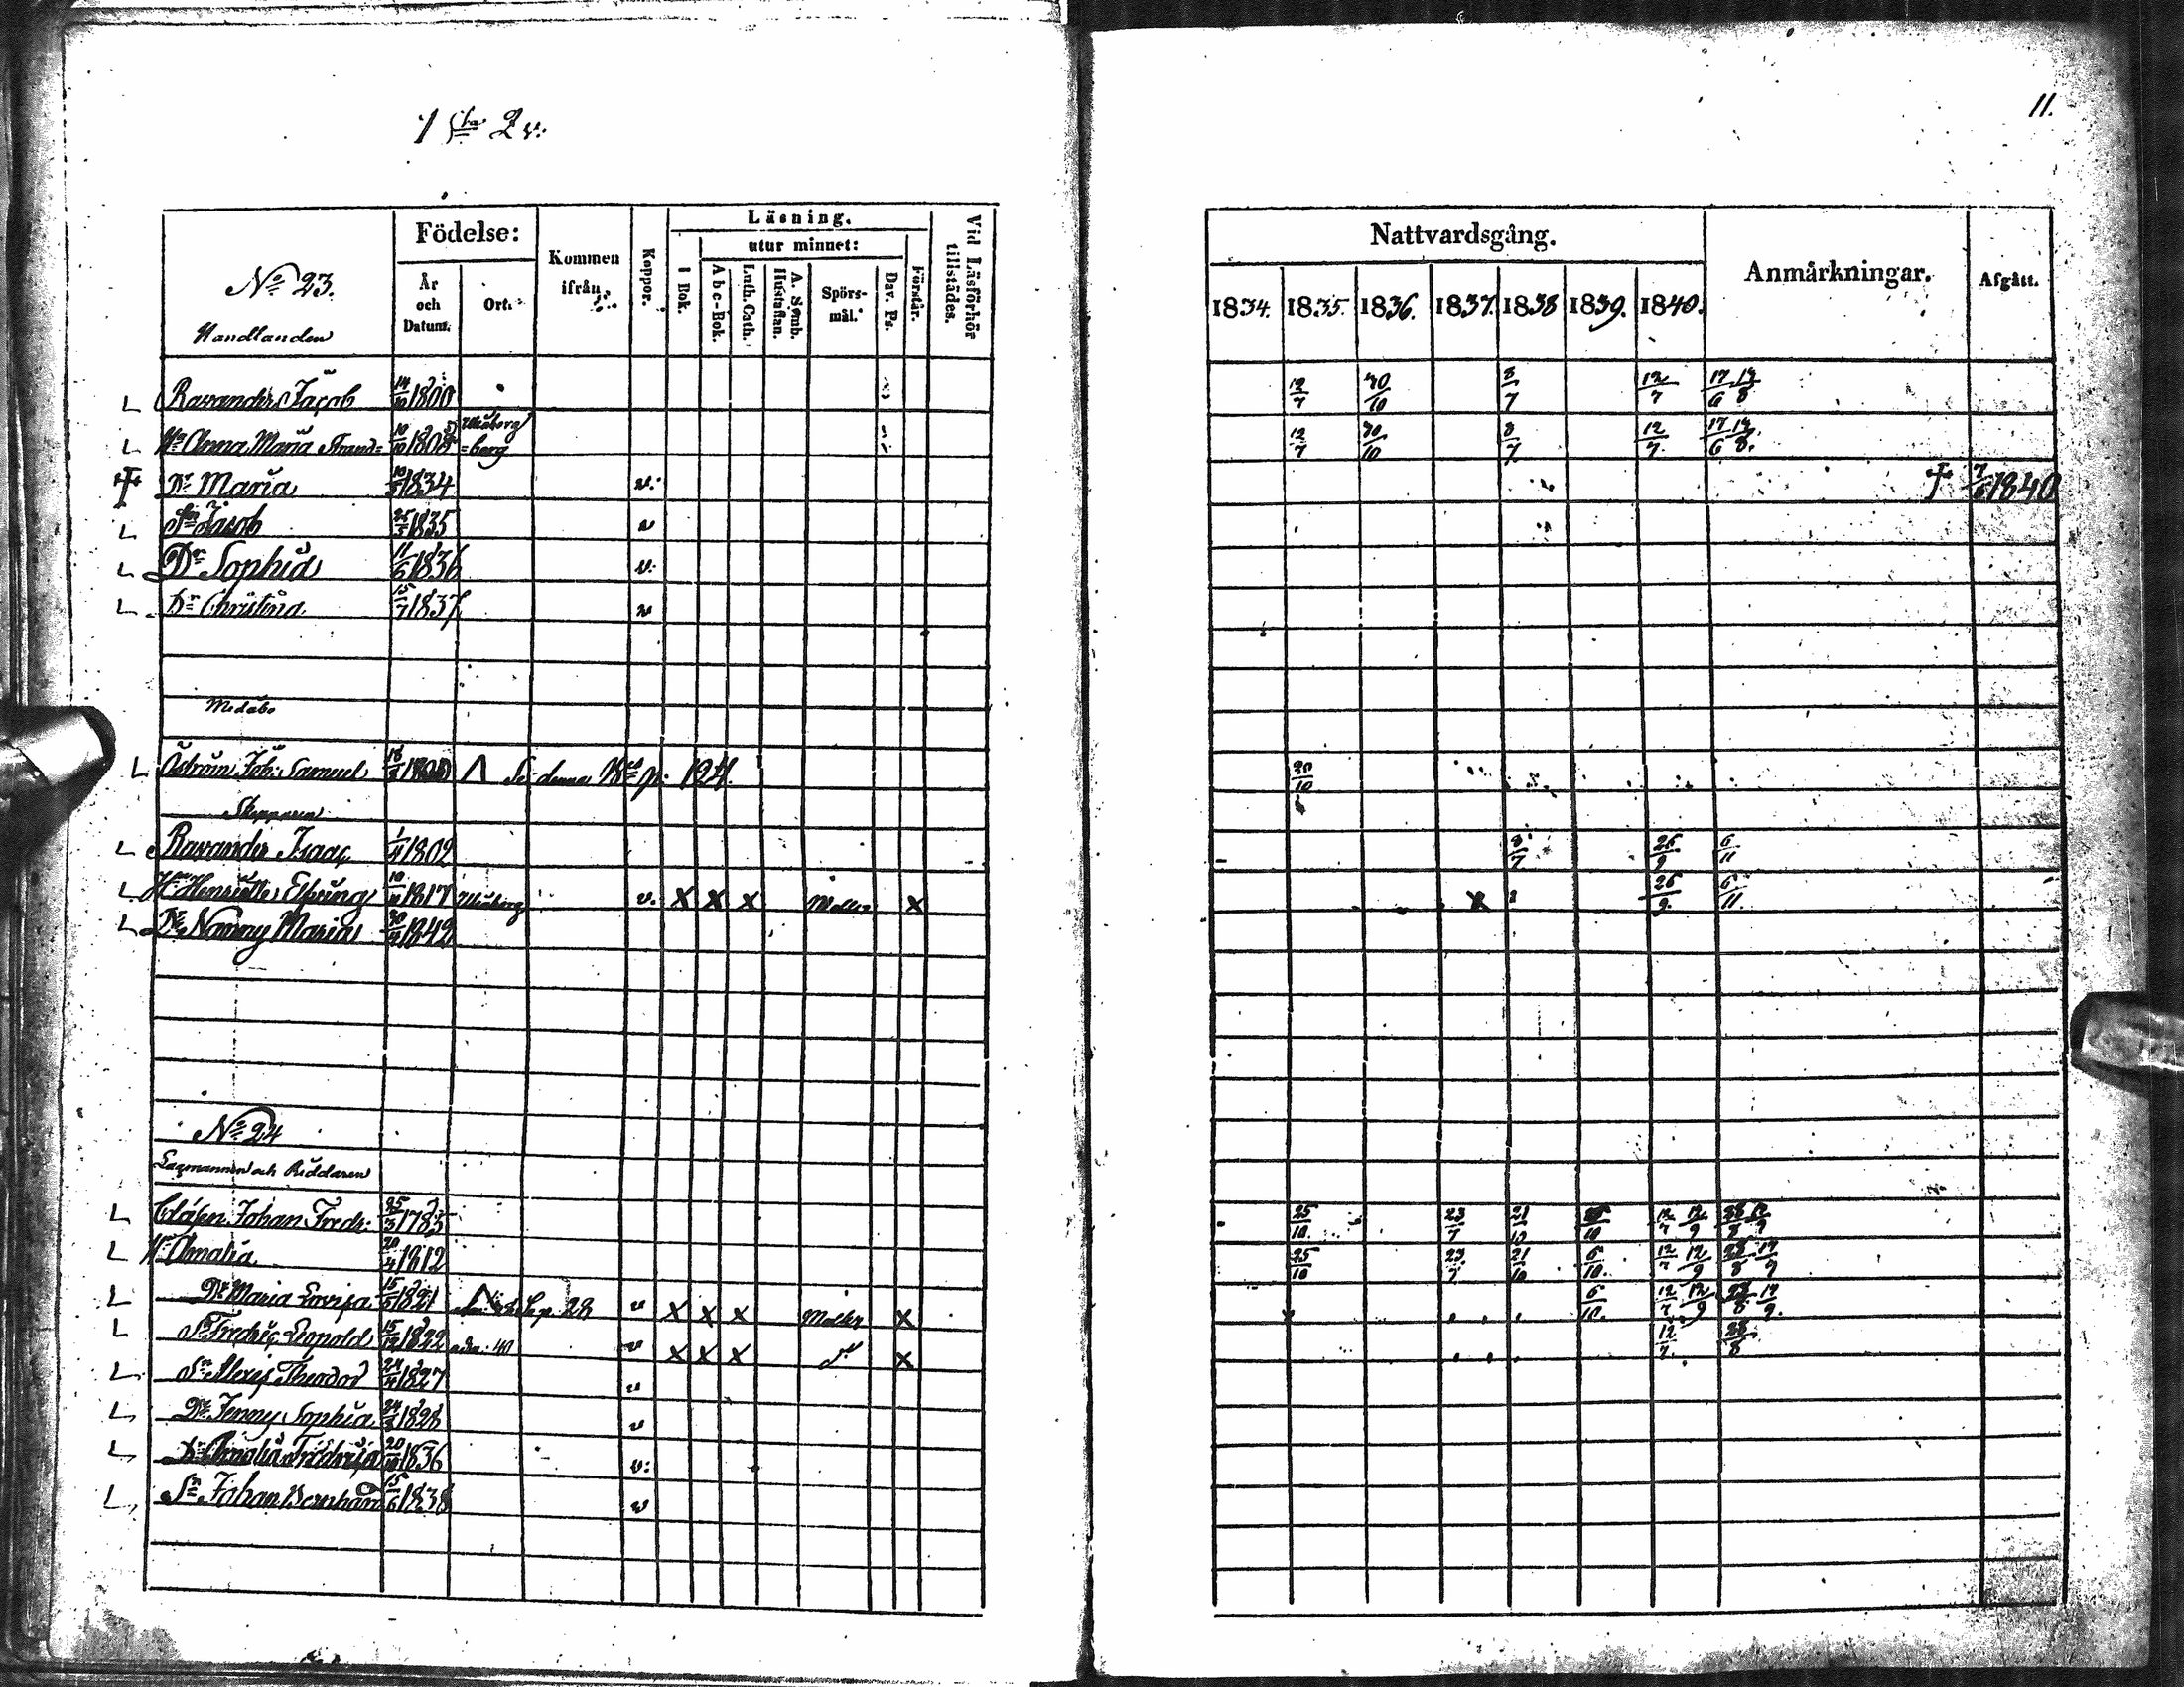 1 sta 2 v:
11.
Födelse:
Kommen ifrån.
Koppor.
Läsning.
utur minnet:
Vid Läsförhör tillstädes.
År och Datum.
Ort.
I Bok.
Abc-Bok.
Luth. Cath.
A. Symb. Hustaflan.
Spörs-mål.
Dav. Ps.
Förstår.
Nattvardsgång.
Anmärkningar.
Afgått.
1834. 1835. 1836. 1837. 1838 1839. 1840.
No 23.
Handlanden
L Ravander Jacob 14/10 1800 12/7 30/10 8/7 12/7 17/6 14/8
L Hu Anna Maria Strand= 10/10 1808 Uleåborg =berg 12/7 30/10 8/7 12/7 17/6 14/8.
† Dr Maria 1834 v. † 7/6 1840
L Sn Jacob 25/5 1835 v
L Dr Sophia 11/6 1836 v.
L Dr Christina 15/7 1837 v
L Öström Joh: Samuel 18 Se denna p. 124. 30/10
Skepparen
L Ravander Isaac 1/4 1809 8/7 26/9 6/11
L Hu Henriette Elfving 10 1817 Uleåborg v. X X X Möller X 26/9. 6/11.
L Dr Nanny Maria 1842
No 24
Lagmannen och Riddaren
L Clásen Johan Fredr: 25/3 1783 25/10. 23/7 21/10 10 12/7 12/9 28/8 12/9
L Hu Amalia 20/4 1812 25/10 23/7 21/10 6/10. 12/7 12/9 28/8 19/9
L Dr Maria Lovisa 15/5 1821 28 v X X X Möller X 6/10. 12/7 12/9 28/8. 19/9.
L Sn Fredric Leopold 15/12 1822 40 v X X X do X 12/7. 28/8
L Sn Alexis Theodor 24/4 1827 v
L Dr Jenny Sophia 24/3 1828 v
L Dr Amalia Fredrica 20/10 1836 v:
L Sn Johan Bernhard 15/6 1838 v